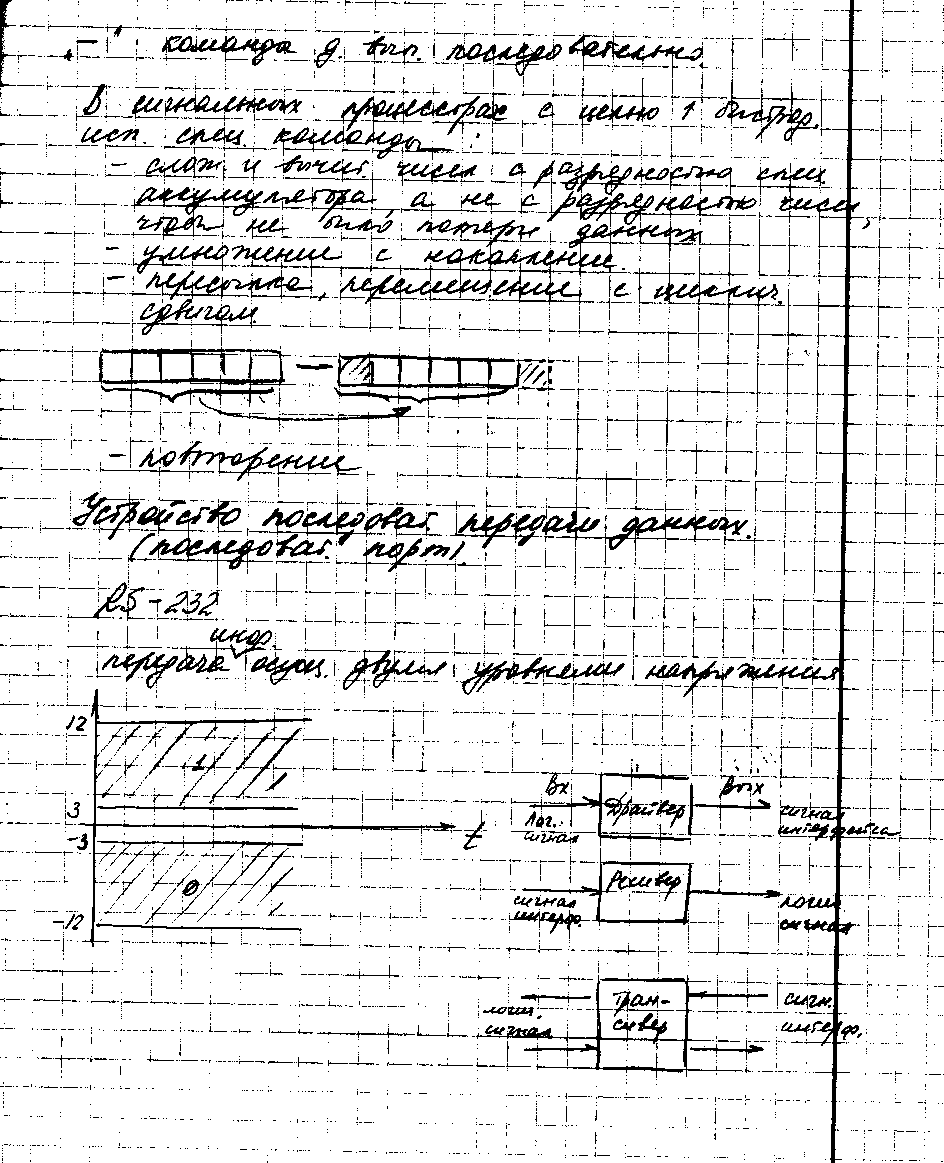 — " команда д. вып. последовательно.
В сигнальных процессорах с целью ↑ быстрод.
исп. спец. команды :
- слож. и вычит. чисел с разрядностью спец.
аккумулятора, а не с разрядностью чисел,
чтобы не было потери данных
- умножение с накопление.
- пересылка, перемещение с циклич.
сдвигом.
- повторение
Устройство последоват. передачи данных.
(последоват. порт).
RS-232
инф.
передача осущ. двумя уровнями напряжения
12
1
3
-3
0
-12
t
Вх
Драйвер
Вых
Лог.
сигнал
сигнал
интерфейса
Ресивер
сигнал
интерф.
логич.
сигнал
Тран-
сивер
логич.
сигнал
сигн.
интерф.